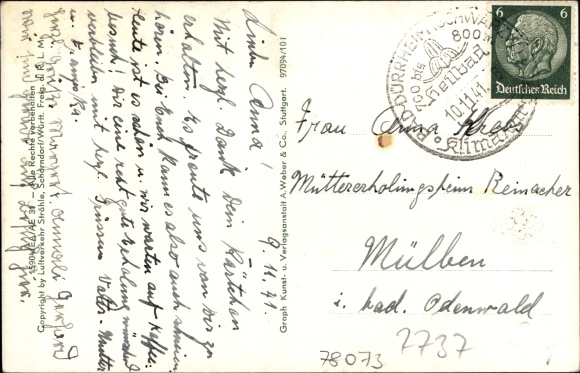 9. 11. 41.
Liebe Anna!
Mit herzl. Dank Dein Kärtchen
erhalten. Es freute uns von Dir zu
hören. Bei Euch kann es also auch schneien
heute ist es schön u. wir warten auf Kaffee-
besuch! Dir eine recht gute Erholung wünschend
verbleiben mit herzl. Grüssen Vater. Mutter
u.
1590W EA/AE 31 – Alle Rechte vorbehalten
Copyright by Luftverkehr Strähle, Schorndorf/Württ. Freig. d. R. L. M.
Graph. Kunst- u. Verlagsanstalt A. Weber & Co., Stuttgart. 97094/101
BAD DÜRRHEIM SCHWARZW
700 bis 800 m
Heilbad
10.11.41
Klimakurort
6 6
Deutsches Reich
Frau Anna
Müttererholungsheim Reinacher
Mülben
i. bad. Odenwald
2737
78073